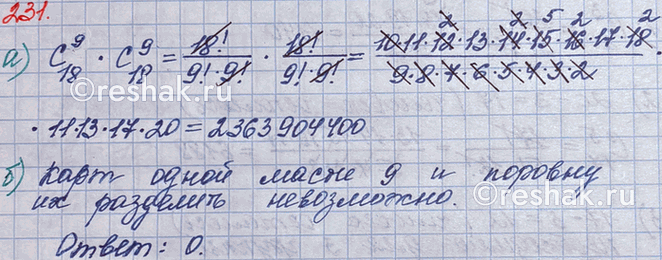 231.
а) C₁₈⁹ · C₁₈⁹ = 18!/(9!·9!) · 18!/(9!·9!) = (10·11·12·13·14·15·16·17·18)/(9·8·7·6·5·4·3·2) ·
2 2 5 2 2
· 11·13·17·20 = 2363904400
б) Карт одной масти 9 и поровну
их разделить невозможно.
Ответ: 0.
©reshak.ru
©reshak.ru